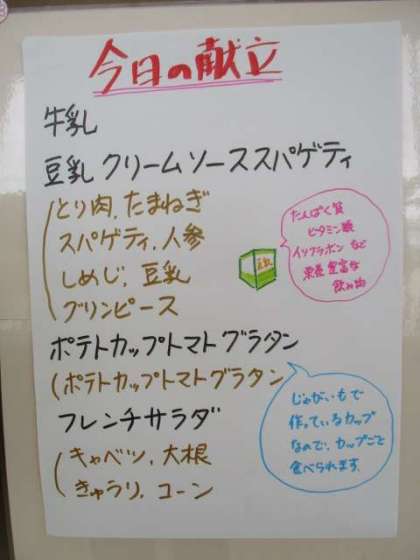 今日の献立
牛乳
豆乳クリームソーススパゲティ
(とり肉、たまねぎ
スパゲティ、人参
しめじ、豆乳
グリンピース
たんぱく質
ビタミン類
イソフラボンなど
栄養豊富な
飲み物
豆乳
ポテトカップトマトグラタン
(ポテトカップトマトグラタン
フレンチサラダ
(キャベツ、大根
きゅうり、コーン
じゃがいもで
作っているカップ
なので、カップごと
食べられます。